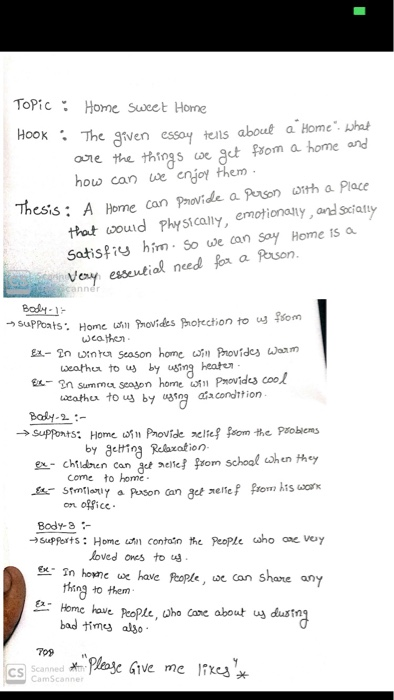 Topic : Home Sweet Home
Hook : The given essay tells about a "Home". What
are the things we get from a home and
how can we enjoy them.
Thesis : A Home can Provide a Person with a Place
that would Physically, emotionally, and socially
satisfiy him. So we can say Home is a
Very essential need for a Person.
Body-1:-
→ supports: Home will Provides Protection to us from
weather.
Ex- In winter season home will Provides warm
weather to us by using heater.
Ex- In summer season home will Provides cool
weather to us by using aircondition.
Body-2 :-
→ supports: Home will Provide relief from the Problems
by getting Relaxation.
Ex- children can get relief from school when they
come to home.
Ex- Similarly a Person can get relief from his work
or office.
Body-3 :-
→ supports: Home will contain the People who are very
loved ones to us.
Ex- In home we have People, we can share any
thing to them.
Ex- Home have People, who care about us during
bad times also.
* "Please Give me likes" *
CS Scanned with
CamScanner